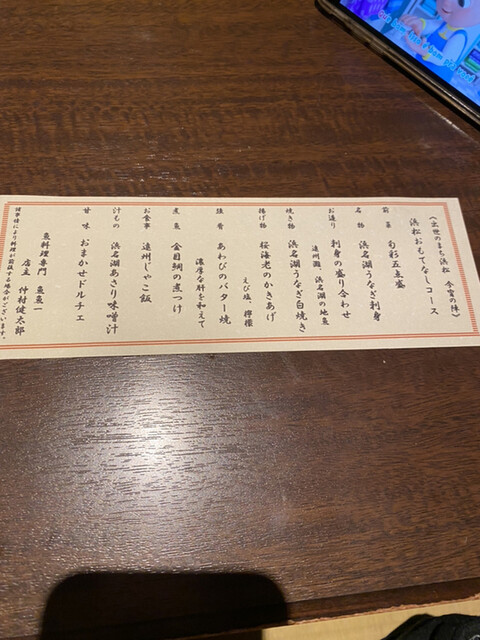 《出世のまち浜松 今宵の陣》
浜松おもてなしコース
前菜 旬彩五点盛
名物 浜名湖うなぎ刺身
お造り 刺身の盛り合わせ
遠州灘、浜名湖の地魚
焼き物 浜名湖うなぎ白焼き
揚げ物 桜海老のかきあげ
えび塩、檸檬
強肴 あわびのバター焼
濃厚な肝を和えて
煮魚 金目鯛の煮つけ
お食事 遠州じゃこ飯
汁もの 浜名湖あさり味噌汁
甘味 おまかせドルチェ
魚料理専門 魚魚一
店主 仲村健太郎
諸事情により料理が前後する場合がございます。